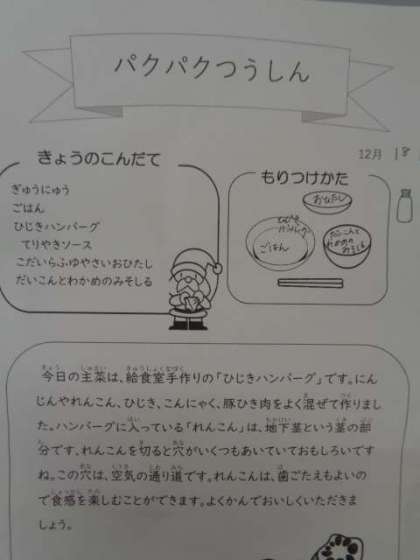 パクパクつうしん
12月 18
きょうのこんだて
ぎゅうにゅう
ごはん
ひじきハンバーグ
てりやきソース
こだいらふゆやさいおひたし
だいこんとわかめのみそしる
もりつけかた
おひたし
ひじき
ハンバーグ
ごはん
だいこんと
わかめの
みそしる
今日の主菜は、給食室手作りの「ひじきハンバーグ」です。にん
じんやれんこん、ひじき、こんにゃく、豚ひき肉をよく混ぜて作りまし
た。ハンバーグに入っている「れんこん」は、地下茎という茎の部
分です。れんこんを切ると穴がいくつもあいていておもしろいです
ね。この穴は、空気の通り道です。れんこんは、歯ごたえもよいの
で食感を楽しむことができます。よくかんでおいしくいただきま
しょう。